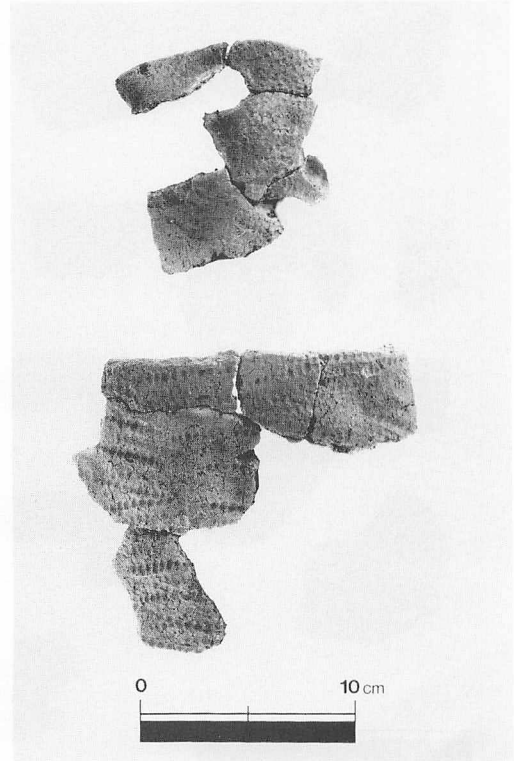 0 10 cm